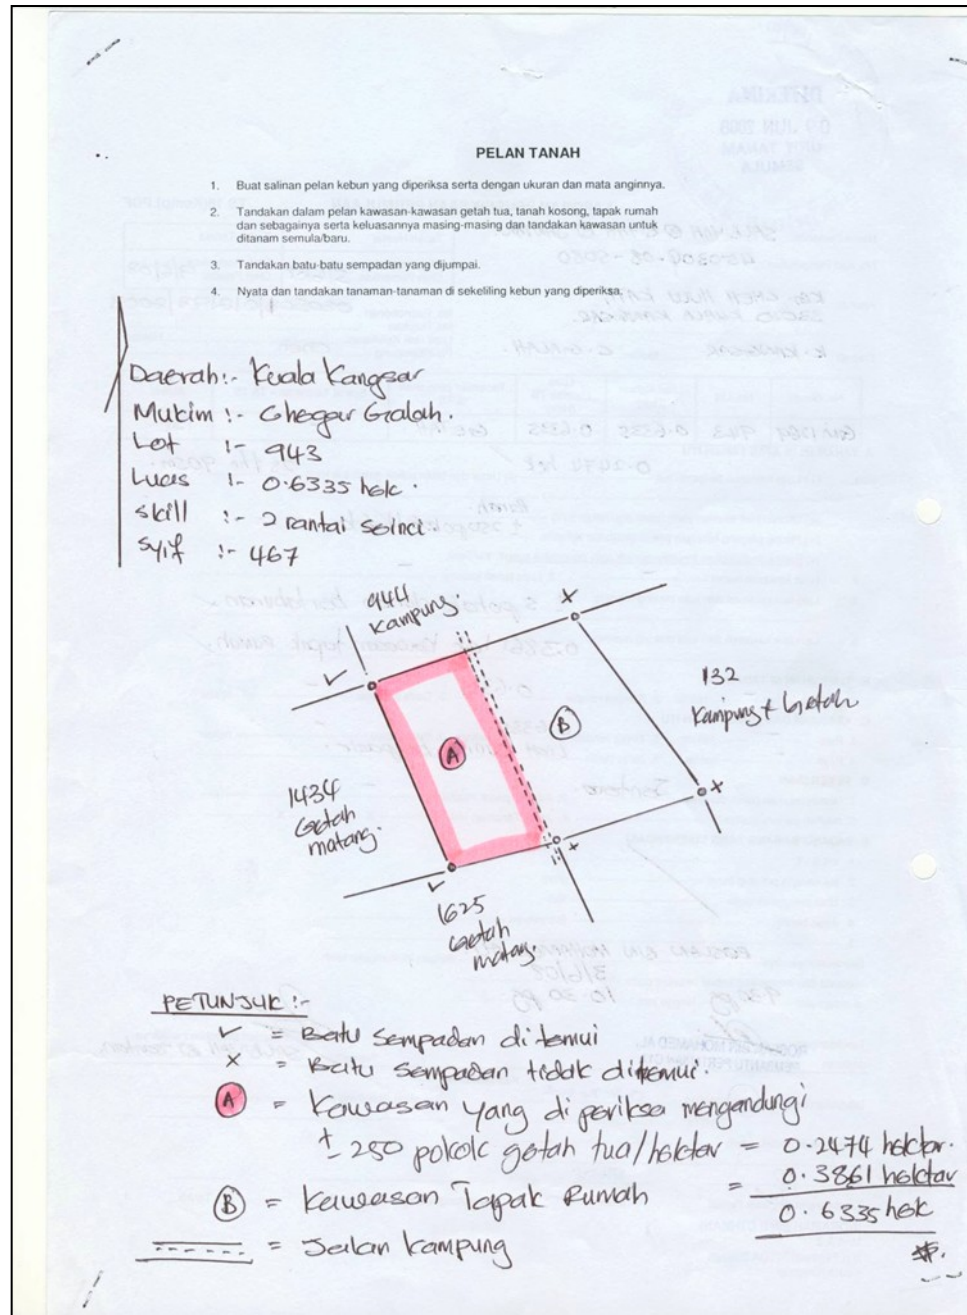 PELAN TANAH
1. Buat salinan pelan kebun yang diperiksa serta dengan ukuran dan mata anginnya.
2. Tandakan dalam pelan kawasan-kawasan getah tua, tanah kosong, tapak rumah
dan sebagainya serta keluasannya masing-masing dan tandakan kawasan untuk
ditanam semula/baru.
3. Tandakan batu-batu sempadan yang dijumpai.
4. Nyata dan tandakan tanaman-tanaman di sekeliling kebun yang diperiksa.
Daerah:- Kuala Kangsar
Mukim :- Chegar Galah.
Lot :- 943
Luas :- 0.6335 hek.
skill :- 2 rantai seinci.
Syif :- 467
944
Kampung.
132
Kampung + Getah
B
A
1434
Getah
matang.
1625
Getah
matang.
PETUNJUK :-
✓ = Batu Sempadan ditemui
× = Batu Sempadan tidak ditemui.
A = Kawasan yang di periksa mengandungi
± 250 pokok getah tua/hektar = 0.2474 hektar.
B = Kawasan Tapak Rumah = 0.3861 hektar
0.6335 hek
= Jalan kampung